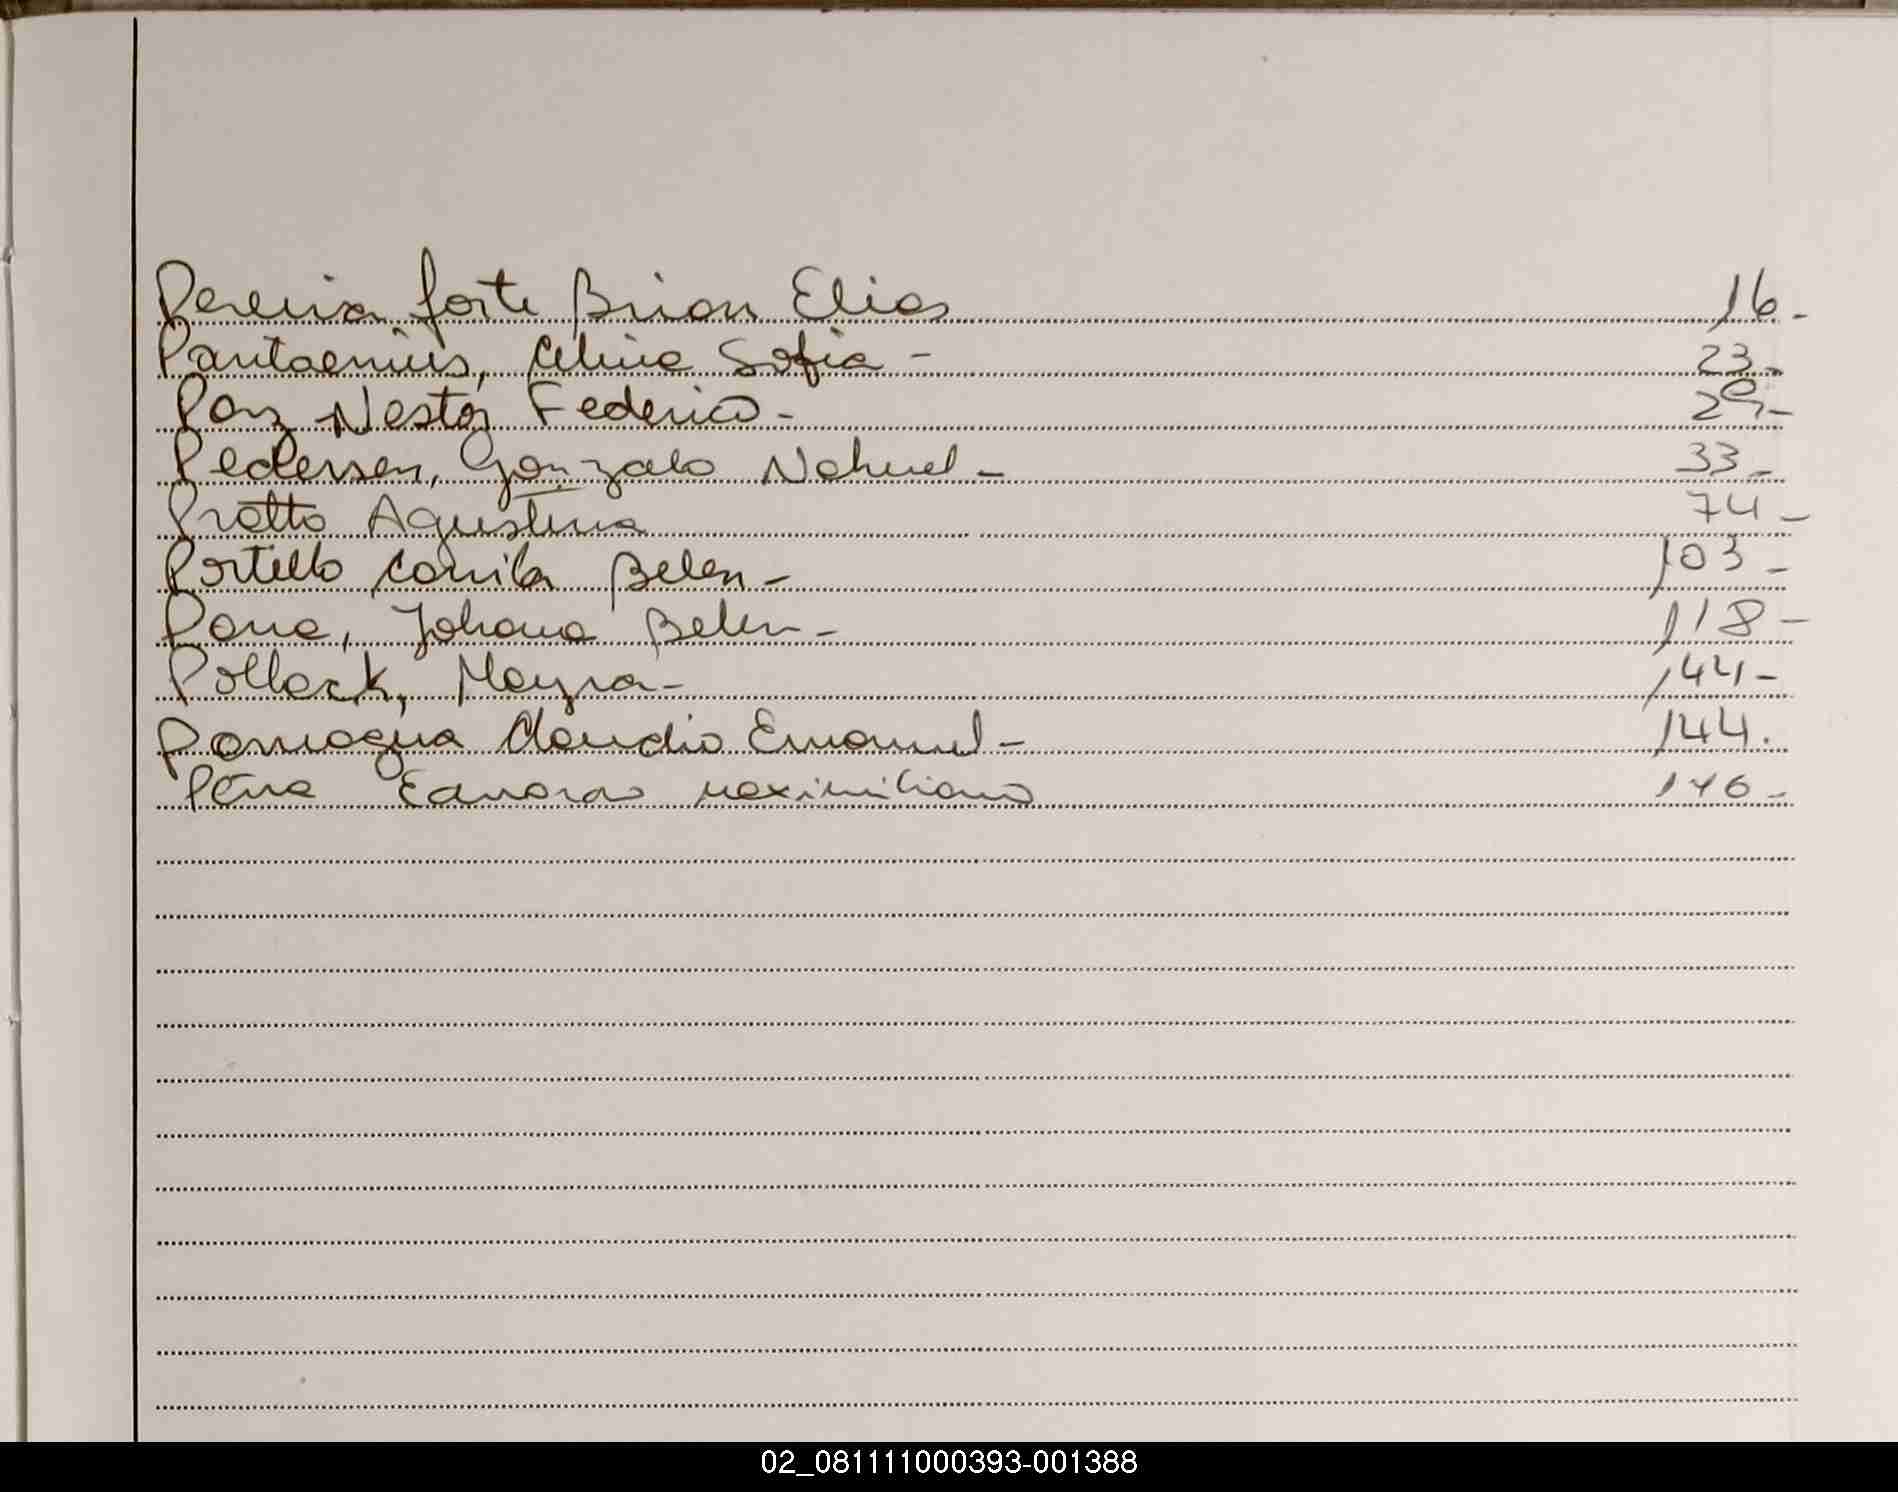 Pereira forte Brian Elias 16-
Pantaenius, Celina Sofia - 23-
Paz Nestor Federico - 29-
Pedersen, Gonzalo Nahuel - 33-
Protto Agustina 74-
Portillo Camila Belen - 103-
Pana, Johana Belen - 118-
Pollack, Mayra - 144-
Paniagua Claudio Emanuel - 144.
Peña Eduardo Maximiliano 146-
02_081111000393-001388